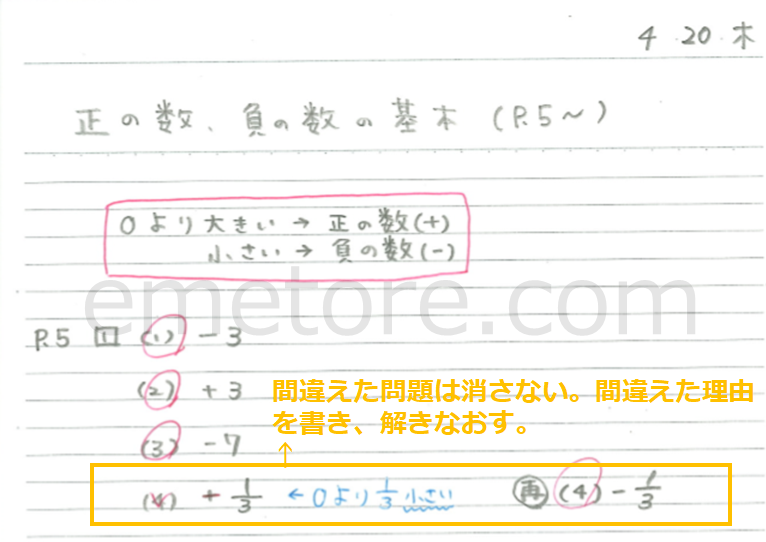 4 20 木
正の数、負の数の基本 (P.5～)
0より大きい → 正の数(+)
小さい → 負の数(-)
emetore.com
P.5 1 (1) -3
(2) +3
間違えた問題は消さない。間違えた理由
を書き、解きなおす。
↑
(3) -7
(4) + 1/3 ←0より1/3小さい 再 (4) - 1/3